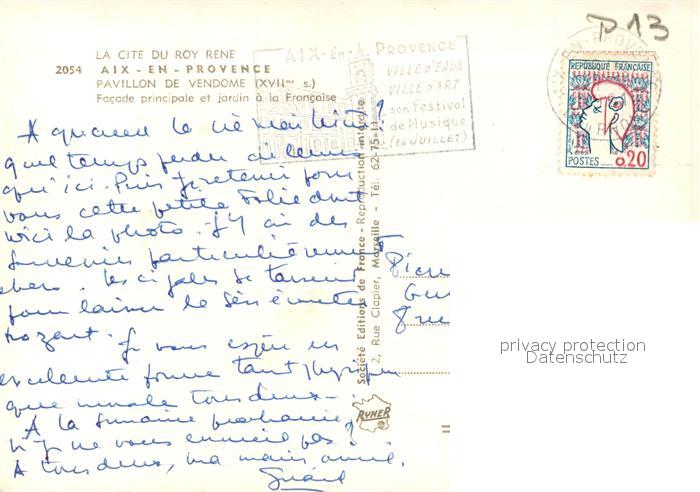 P 13
LA CITE DU ROY RENE
2054 AIX - EN - PROVENCE
PAVILLON DE VENDOME (XVIIme s.)
Façade principale et jardin à la Française
AIX-EN-PROVENCE
VILLE d'EAUX
VILLE d'ART
son Festival
de Musique
(en JUILLET)
REPUBLIQUE FRANÇAISE
POSTES 0,20
A quand la vie
quel temps perdu
qu'ici. Puis je retenir pour
vous cette petite folie dont
voici la photo. J'y ai des
souvenirs particulièrement
chers. les cigales se taisent
pour laisser le
Mozart. Je vous espère en
excellente forme tant physique
que morale tous deux.
A la semaine prochaine,
si je ne vous ennuie pas ?
A tous deux, ma main amie,
Société Editions de France - Reproduction interdite
2, Rue Clapier, Marseille - Tél: 62-75-11
RYNER
privacy protection
Datenschutz